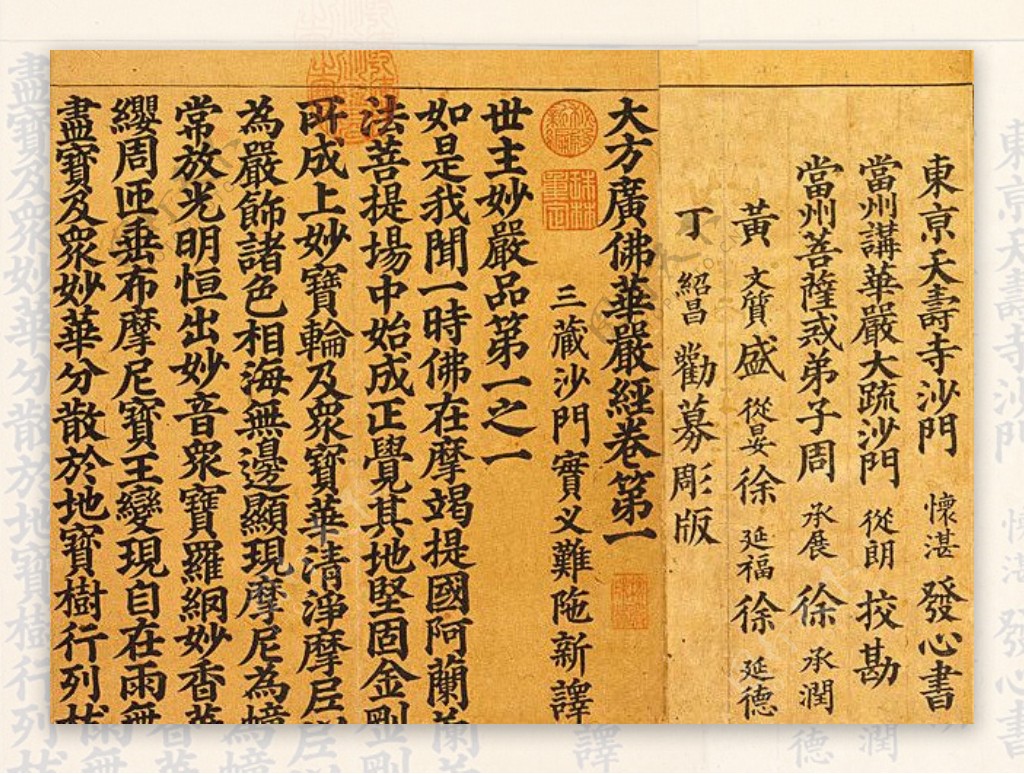 東京天壽寺沙門 懷湛 發心書
當州講華嚴大疏沙門 從朗 挍勘
當州菩薩戒弟子周 承展 徐 承潤
黃 文質 盛 從晏 徐 延福 徐 延德
丁 紹昌 勸募彫版
大方廣佛華嚴經卷第一
三藏沙門實义難陁新譯
世主妙嚴品第一之一
如是我聞一時佛在摩竭提國阿蘭
法菩提場中始成正覺其地堅固金剛
所成上妙寶輪及眾寶華清淨摩尼
為嚴飾諸色相海無邊顯現摩尼為幢
常放光明恒出妙音眾寶羅網妙香華
纓周匝垂布摩尼寶王變現自在雨無
盡寶及眾妙華分散於地寶樹行列